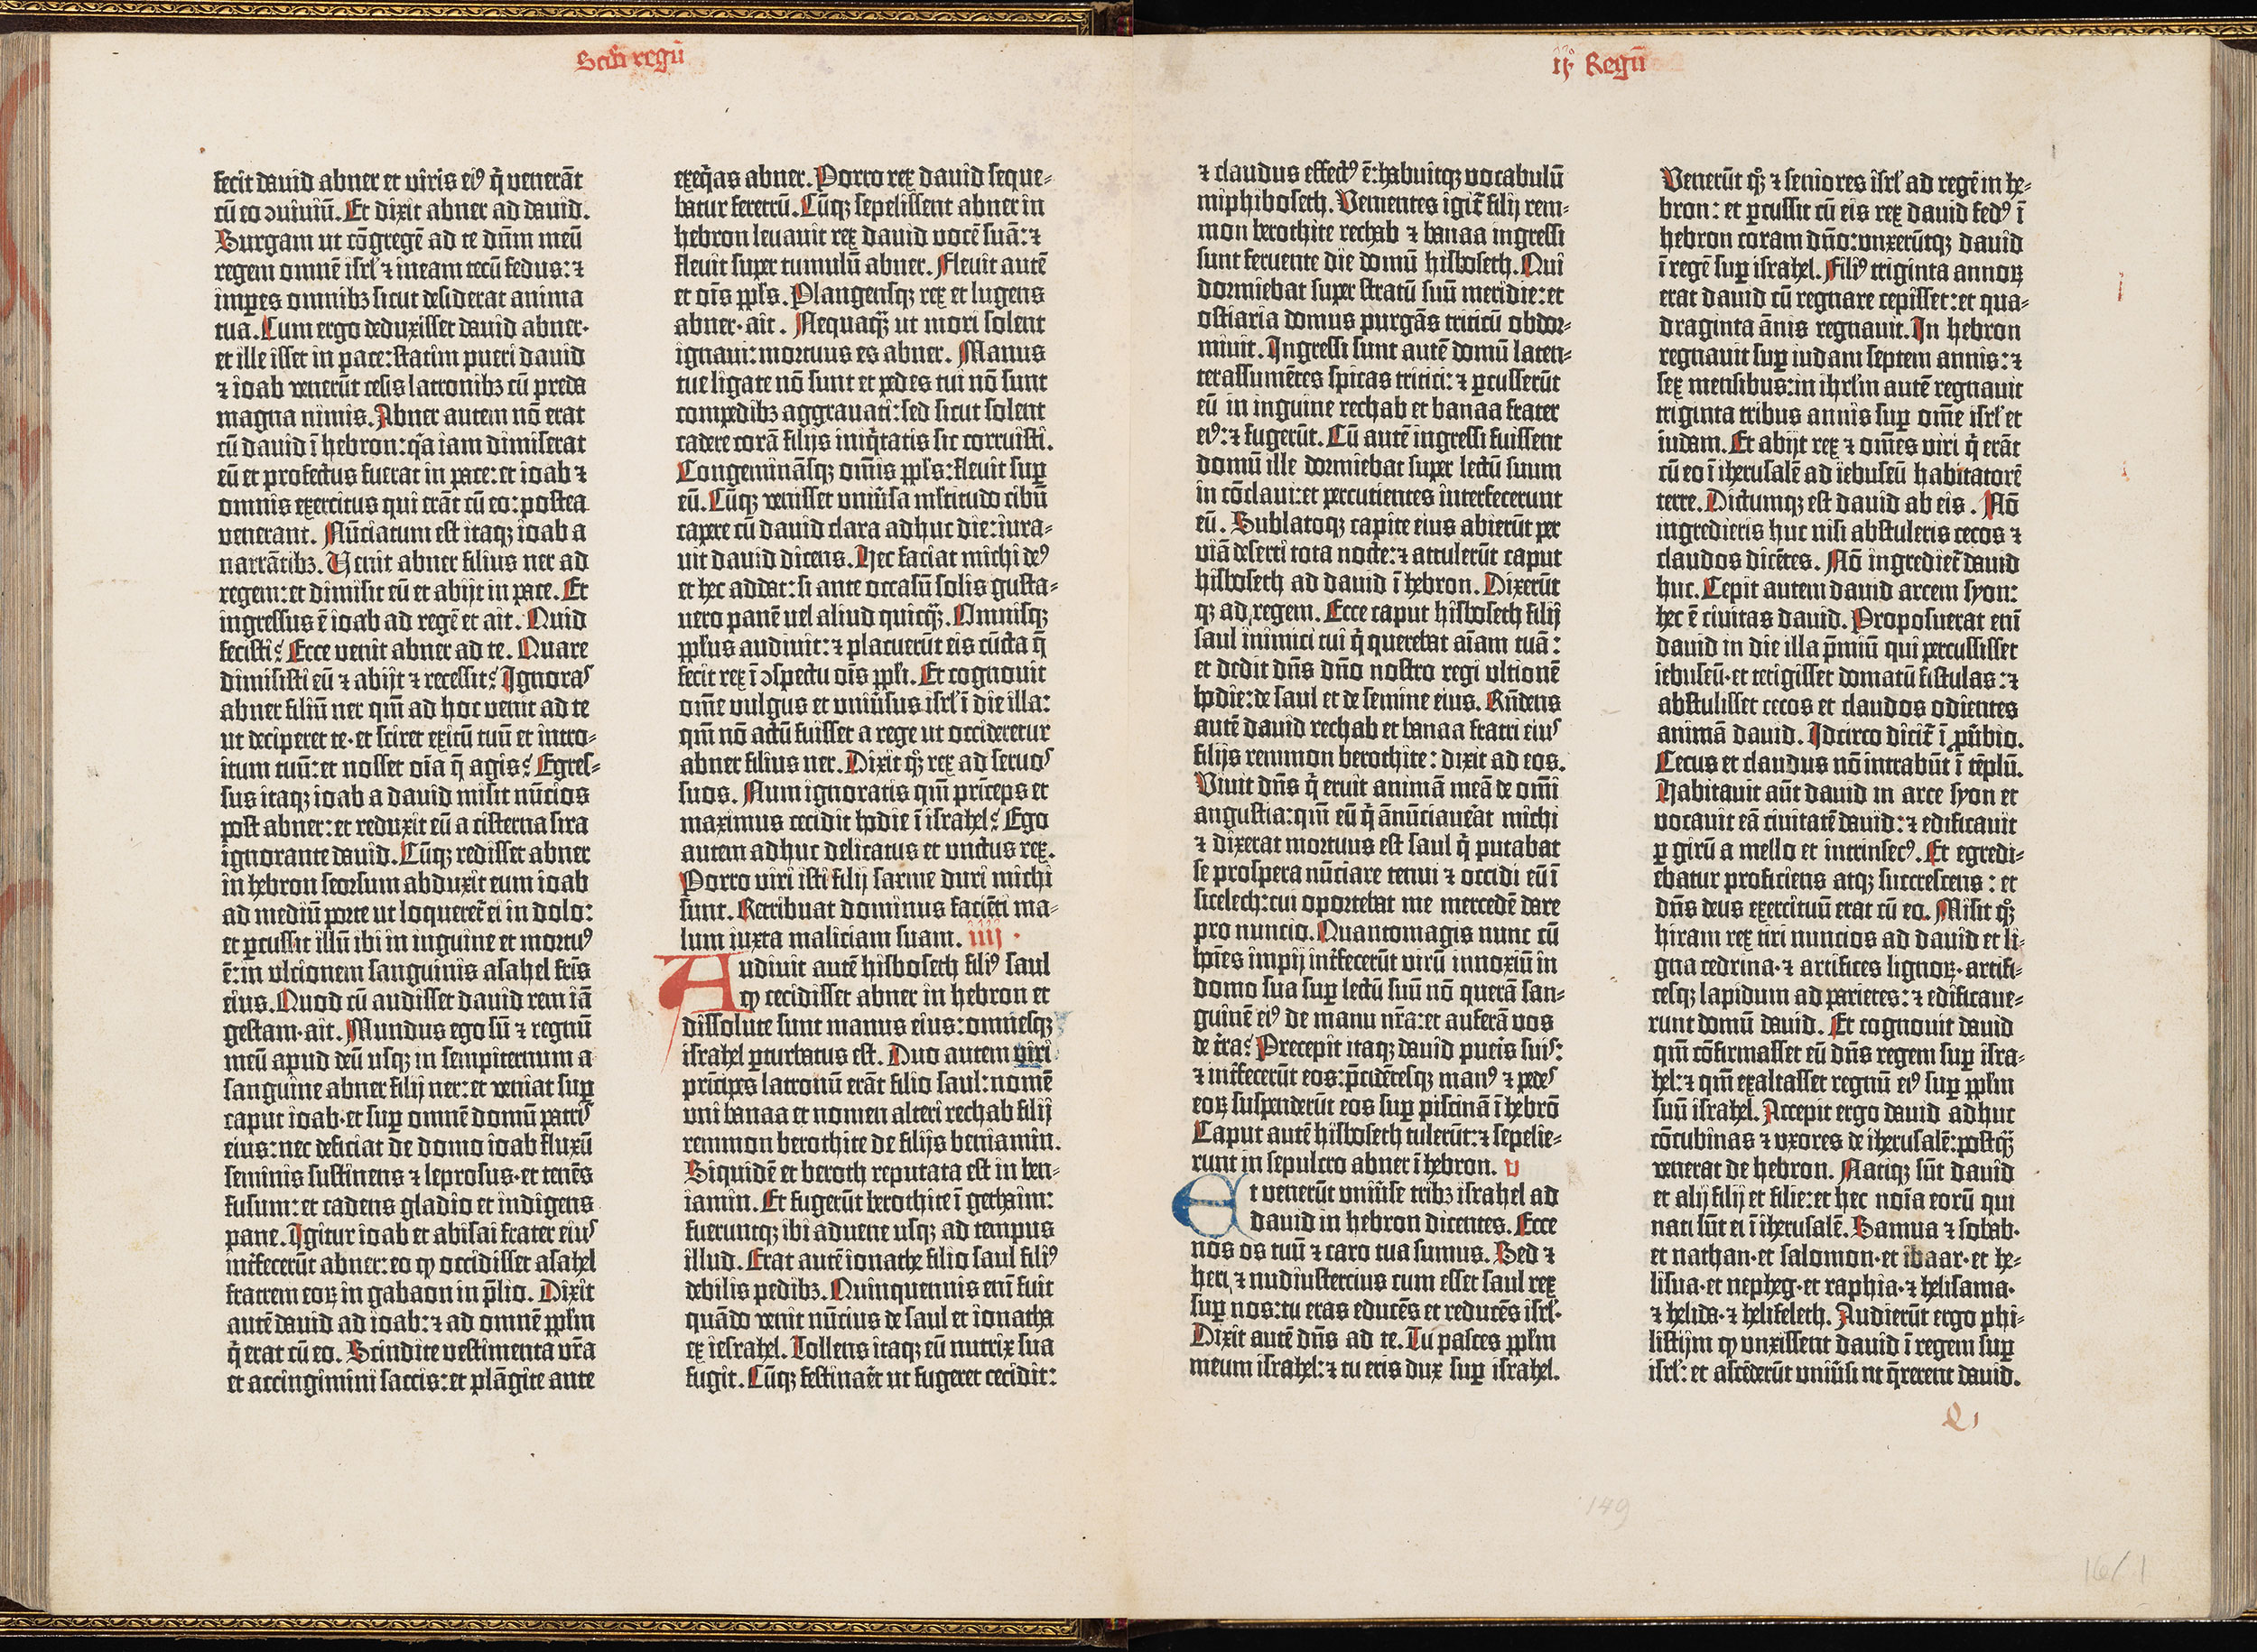 Scďi regū
fecit dauid abner et viris ei⁹ q̇ venerāt
cū eo ↄuiuiū. Et dixit abner ad dauid.
Surgam ut cōgregē ad te dn̄m meū
regem omnē isrl̓ ⁊ ineam tecū fedus: ⁊
imꝑes omnibꝫ sicut desiderat anima
tua. Cum ergo deduxisset dauid abner·
et ille isset in pace: statim pueri dauid
⁊ ioab venerūt cesis latronibꝫ cū preda
magna nimis. Abner autem nō erat
cū dauid ī hebron: q̇a iam dimiserat
eū et profectus fuerat in pace: et ioab ⁊
omnis exercitus qui erāt cū eo: postea
venerant. Nūciatum est itaqꝫ ioab a
narrātibꝫ. Venit abner filius ner ad
regem: et dimisit eū et abijt in pace. Et
ingressus ē ioab ad regē et ait. Quid
fecisti? Ecce venit abner ad te. Quare
dimisisti eū ⁊ abijt ⁊ recessit? Ignoras
abner filiū ner qm̄ ad hoc venit ad te
ut deciperet te· et sciret exitū tuū et intro-
itum tuū: et nosset oīa q̄ agis? Egres-
sus itaqꝫ ioab a dauid misit nūcios
post abner: et reduxit eū a cisterna sira
ignorante dauid. Cūqꝫ redisset abner
in hebron seorsum abduxit eum ioab
ad mediū porte ut loqueret̄ ei in dolo:
et ꝑcussit illū ibi in inguine et mortu⁹
ē: in ulcionem sanguinis asahel fr̄is
eius. Quod cū audisset dauid rem iā
gestam· ait. Mundus ego sū ⁊ regnū
meū apud deū usqꝫ in sempiternum a
sanguine abner filij ner: et veniat suꝑ
caput ioab· et suꝑ omnē domū patris
eius: nec deficiat de domo ioab fluxū
seminis sustinens ⁊ leprosus· et tenēs
fusum: et cadens gladio et indigens
pane. Igitur ioab et abisai frater eius
int̄fecerūt abner: eo ꝙ occidisset asahel
fratrem eoꝝ in gabaon in p̄lio. Dixit
autē dauid ad ioab: ⁊ ad omnē pp̄lm
q̇ erat cū eo. Scindite vestimenta vr̄a
et accingimini saccis: et plāgite ante
exeq̇as abner. Porro rex dauid seque-
batur feretrū. Cūqꝫ sepelissent abner in
hebron leuauit rex dauid vocē suā: ⁊
fleuit super tumulū abner. Fleuit autē
et oīs pp̄ls. Plangensqꝫ rex et lugens
abner· ait. Nequaqꝫ̄ ut mori solent
ignaui: mortuus es abner. Manus
tue ligate nō sunt et pedes tui nō sunt
compedibꝫ aggrauati: sed sicut solent
cadere corā filijs iniq̇tatis sic corruisti.
Congemināsqꝫ om̄is pp̄ls: fleuit suꝑ
eū. Cūqꝫ venisset vniūsa ml̄titudo cibū
capere cū dauid clara adhuc die: iura-
uit dauid dicens. Hec faciat michi de⁹
et hec addat: si ante occasū solis gusta-
uero panē uel aliud quicqꝫ̄. Omnisqꝫ
pp̄lus audiuit: ⁊ placuerūt eis cūcta q̄
fecit rex ī ↄspectu oīs pp̄li. Et cognouit
om̄e vulgus et vniūsus isrl̓ ī die illa:
qm̄ nō actū fuisset a rege ut occideretur
abner filius ner. Dixit qꝫ̊ rex ad seruos
suos. Num ignoratis qm̄ prīceps et
maximus cecidit hodie ī israhel? Ego
autem adhuc delicatus et vnctus rex.
Porro viri isti filij saruie duri michi
sunt. Retribuat dominus faciēti ma-
lum iuxta maliciam suam. iiij
Audiuit autē hisboseth fili⁹ saul
ꝙ cecidisset abner in hebron et
dissolute sunt manus eius: omnesqꝫ
israhel ꝑturbatus est. Duo autem viri
prīcipes latronū erāt filio saul: nomē
vni banaa et nomen alteri rechab filij
remmon berothite de filijs beniamin.
Siquidē et beroth reputata est in ben-
iamin. Et fugerūt berothite ī gethaim:
fueruntqꝫ ibi aduene usqꝫ ad tempus
illud. Erat autē ionathe filio saul fili⁹
debilis pedibꝫ. Quinquennis eni̅ fuit
quādo venit nūcius de saul et ionatha
ex iesrahel. Tollens itaqꝫ eū nutrix sua
fugit. Cūqꝫ festinaēt ut fugeret cecidit:
ij Regū
⁊ claudus effect⁹ ē: habuitqꝫ vocabulū
miphiboseth. Venientes igit̄ filij rem-
mon berothite rechab ⁊ banaa ingressi
sunt feruente die domū hisboseth. Qui
dormiebat super stratū suū meridie: et
ostiaria domus purgās triticū obdor-
miuit. Ingressi sunt autē domū laten-
ter assumētes spicas tritici: ⁊ ꝑcusserūt
eū in inguine rechab et banaa frater
ei⁹: ⁊ fugerūt. Cū autē ingressi fuissent
domū ille dormiebat super lectū suum
in cōclaui: et percutientes interfecerunt
eū. Sublatoqꝫ capite eius abierūt per
viā deserti tota nocte: ⁊ attulerūt caput
hisboseth ad dauid ī hebron. Dixerūt
qꝫ ad regem. Ecce caput hisboseth filij
saul inimici tui q̇ querebat aīam tuā:
et dedit dn̄s dn̄o nostro regi ultionē
hodie: de saul et de semine eius. Rn̄dens
autē dauid rechab et banaa fratri eius
filijs remmon berothite: dixit ad eos.
Viuit dn̄s q̇ eruit animā meā de om̄i
angustia: qm̄ eū q̇ ānūciauēat michi
⁊ dixerat mortuus est saul q̇ putabat
se prospera nūciare tenui ⁊ occidi eū ī
sicelech: cui oportebat me mercedē dare
pro nuncio. Quantomagis nunc cū
hoīes impij int̄fecerūt virū innoxiū in
domo sua suꝑ lectū suū nō querā san-
guinē ei⁹ de manu nr̄a: et auferā vos
de t̄ra? Precepit itaqꝫ dauid pueis suis:
⁊ int̄fecerūt eos: p̄cidētesqꝫ man⁹ ⁊ pedes
eoꝝ suspenderūt eos suꝑ piscinā ī hebrō
Caput autē hisboseth tulerūt: ⁊ sepelie-
runt in sepulcro abner ī hebron. v
Et venerūt vniūse tribꝫ israhel ad
dauid in hebron dicentes. Ecce
nos os tuū ⁊ caro tua sumus. Sed ⁊
heri ⁊ nudiustercius cum esset saul rex
suꝑ nos: tu eras educēs et reducēs isrl̓.
Dixit autē dn̄s ad te. Tu pasces pp̄lm
meum israhel: ⁊ tu eris dux suꝑ israhel.
Venerūt qꝫ̊ ⁊ seniores isrl̓ ad regē in he-
bron: et ꝑcussit cū eis rex dauid fed⁹ ī
hebron coram dn̄o: vnxerūtqꝫ dauid
ī regē suꝑ israhel. Fili⁹ triginta annoꝝ
erat dauid cū regnare cepisset: et qua-
draginta ānis regnauit. In hebron
regnauit suꝑ iudam septem annis: ⁊
sex mensibus: in ihrl̄m autē regnauit
triginta tribus annis suꝑ om̄e isrl̓ et
iudam. Et abijt rex ⁊ om̄es viri q̇ erāt
cū eo ī iherusalē ad iebuseū habitatorē
terre. Dictumqꝫ est dauid ab eis. Nō
ingredieris huc nisi abstuleris cecos ⁊
claudos dicētes. Nō ingrediet̄ dauid
huc. Cepit autem dauid arcem syon:
hec ē ciuitas dauid. Proposuerat enī
dauid in die illa p̄miū qui percussisset
iebuseū· et tetigisset domatū fistulas: ⁊
abstulisset cecos et claudos odientes
animā dauid. Idcirco dicit̄ ī ꝓūbio.
Cecus et claudus nō intrabūt ī tēplū.
Habitauit aūt dauid in arce syon et
vocauit eā ciuitatē dauid: ⁊ edificauit
ꝑ girū a mello et intrinsec⁹. Et egredi-
ebatur proficiens atqꝫ succrescens: et
dn̄s deus exercituū erat cū eo. Misit qꝫ̊
hiram rex tiri nuncios ad dauid et li-
gna cedrina· ⁊ artifices lignoꝝ· artifi-
cesqꝫ lapidum ad parietes: ⁊ edificaue-
runt domū dauid. Et cognouit dauid
qm̄ cōfirmasset eū dn̄s regem suꝑ isra-
hel: ⁊ qm̄ exaltasset regnū ei⁹ suꝑ pp̄lm
suū israhel. Accepit ergo dauid adhuc
cōcubinas ⁊ vxores de iherusalē: postqꝫ̄
venerat de hebron. Natiqꝫ sūt dauid
et alij filij et filie: et hec noīa eorū qui
nati sūt ei ī iherusalē. Samua ⁊ sobab·
et nathan· et salomon· et ibaar· et he-
lisua· et nepheg· et raphia· ⁊ helisama·
⁊ helida· ⁊ helifelech. Audierūt ergo phi-
listijm ꝙ vnxissent dauid ī regem suꝑ
isrl̓: et ascēderūt vniūsi ut q̄rerent dauid.
149